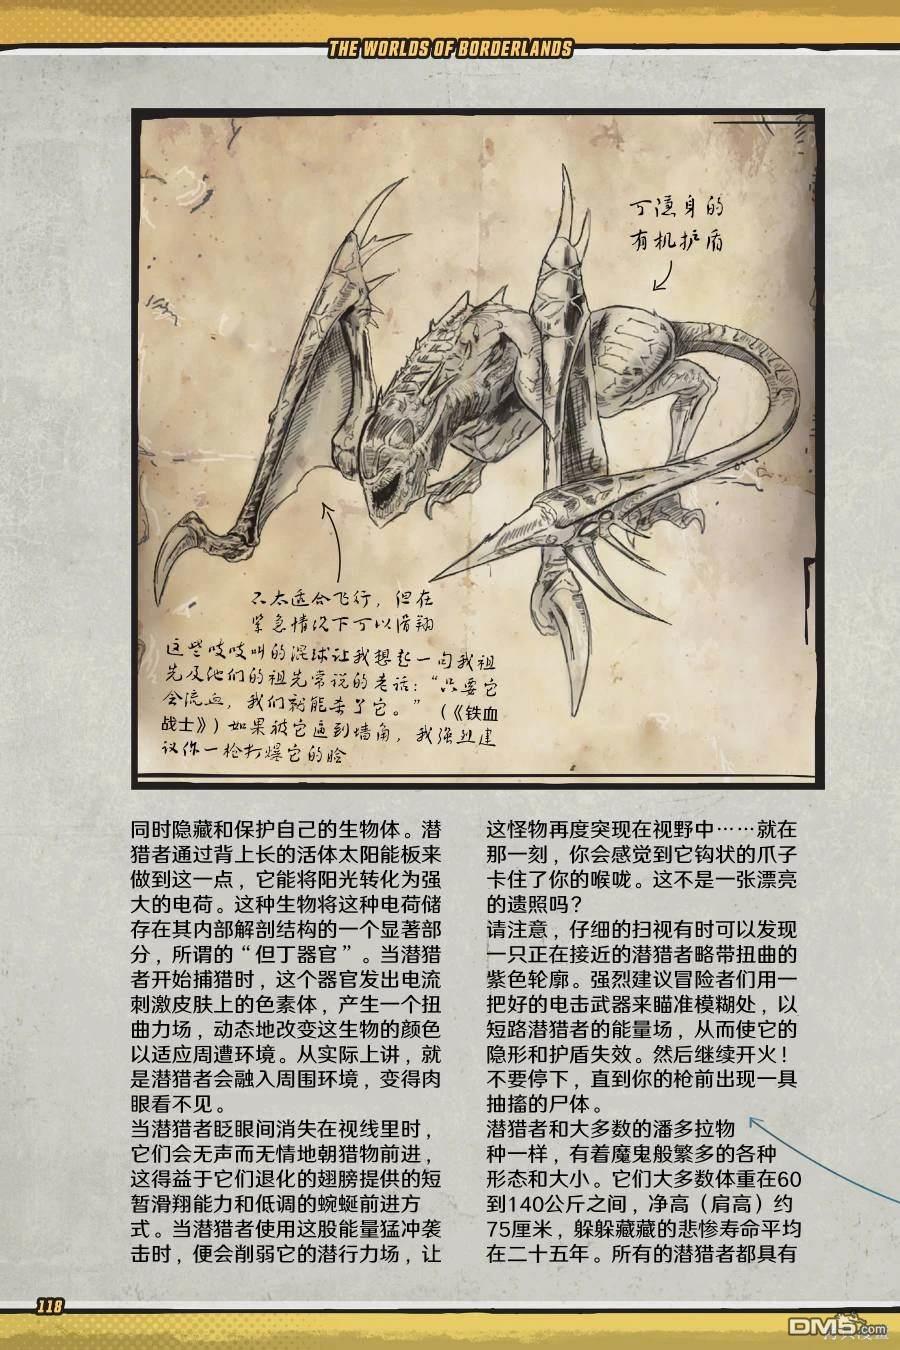 THE WORLDS OF BORDERLANDS
可隐身的
有机护盾
不太适合飞行，但在
紧急情况下可以滑翔
这些吱吱叫的混球让我想起一句我祖
先及他们的祖先常说的老话：“只要它
会流血，我们就能杀了它。”（《铁血
战士》）如果被它逼到墙角，我强烈建
议你一枪打爆它的脸
同时隐藏和保护自己的生物体。潜
猎者通过背上长的活体太阳能板来
做到这一点，它能将阳光转化为强
大的电荷。这种生物将这种电荷储
存在其内部解剖结构的一个显著部
分，所谓的“但丁器官”。当潜猎
者开始捕猎时，这个器官发出电流
刺激皮肤上的色素体，产生一个扭
曲力场，动态地改变这生物的颜色
以适应周遭环境。从实际上讲，就
是潜猎者会融入周围环境，变得肉
眼看不见。
当潜猎者眨眼间消失在视线里时，
它们会无声而无情地朝猎物前进，
这得益于它们退化的翅膀提供的短
暂滑翔能力和低调的蜿蜒前进方
式。当潜猎者使用这股能量猛冲袭
击时，便会削弱它的潜行力场，让
这怪物再度突现在视野中……就在
那一刻，你会感觉到它钩状的爪子
卡住了你的喉咙。这不是一张漂亮
的遗照吗？
请注意，仔细的扫视有时可以发现
一只正在接近的潜猎者略带扭曲的
紫色轮廓。强烈建议冒险者们用一
把好的电击武器来瞄准模糊处，以
短路潜猎者的能量场，从而使它的
隐形和护盾失效。然后继续开火！
不要停下，直到你的枪前出现一具
抽搐的尸体。
潜猎者和大多数的潘多拉物
种一样，有着魔鬼般繁多的各种
形态和大小。它们大多数体重在60
到140公斤之间，净高（肩高）约
75厘米，躲躲藏藏的悲惨寿命平均
在二十五年。所有的潜猎者都具有
118
DM5.com